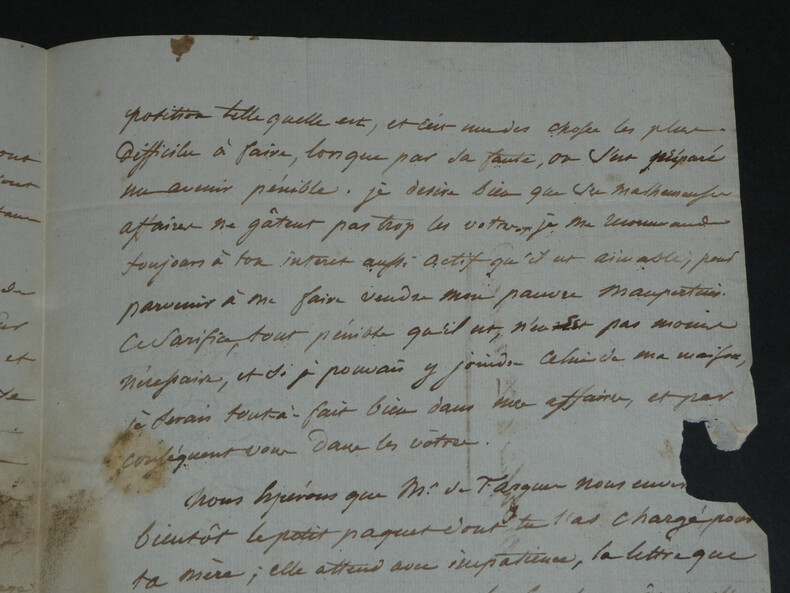 out
tout
position telle quelle est, et c'est une des chose les plus
difficile à faire, lorsque par sa faute, on s'est préparé
un avenir pénible. je desire bien que ses malheureuses
affaires ne gâtent pas trop les votres, je me recommande
toujours à ton interet aussi actif qu'il est aimable, pour
parvenir à me faire vendre mon pauvre Maupertuis.
Ce Sacrifice, tout pénible qu'il est, n'en est pas moins
nécessaire, et si je pouvais y joindre celui de ma maison,
je serais tout-à-fait bien dans mes affaires, et par
conséquent vous dans les vôtres.
Nous espérons que Mr. de nous
bientôt le petit paquet dont tu l'as chargé pour
ta mère; elle attend avec impatience, la lettre que
de
et